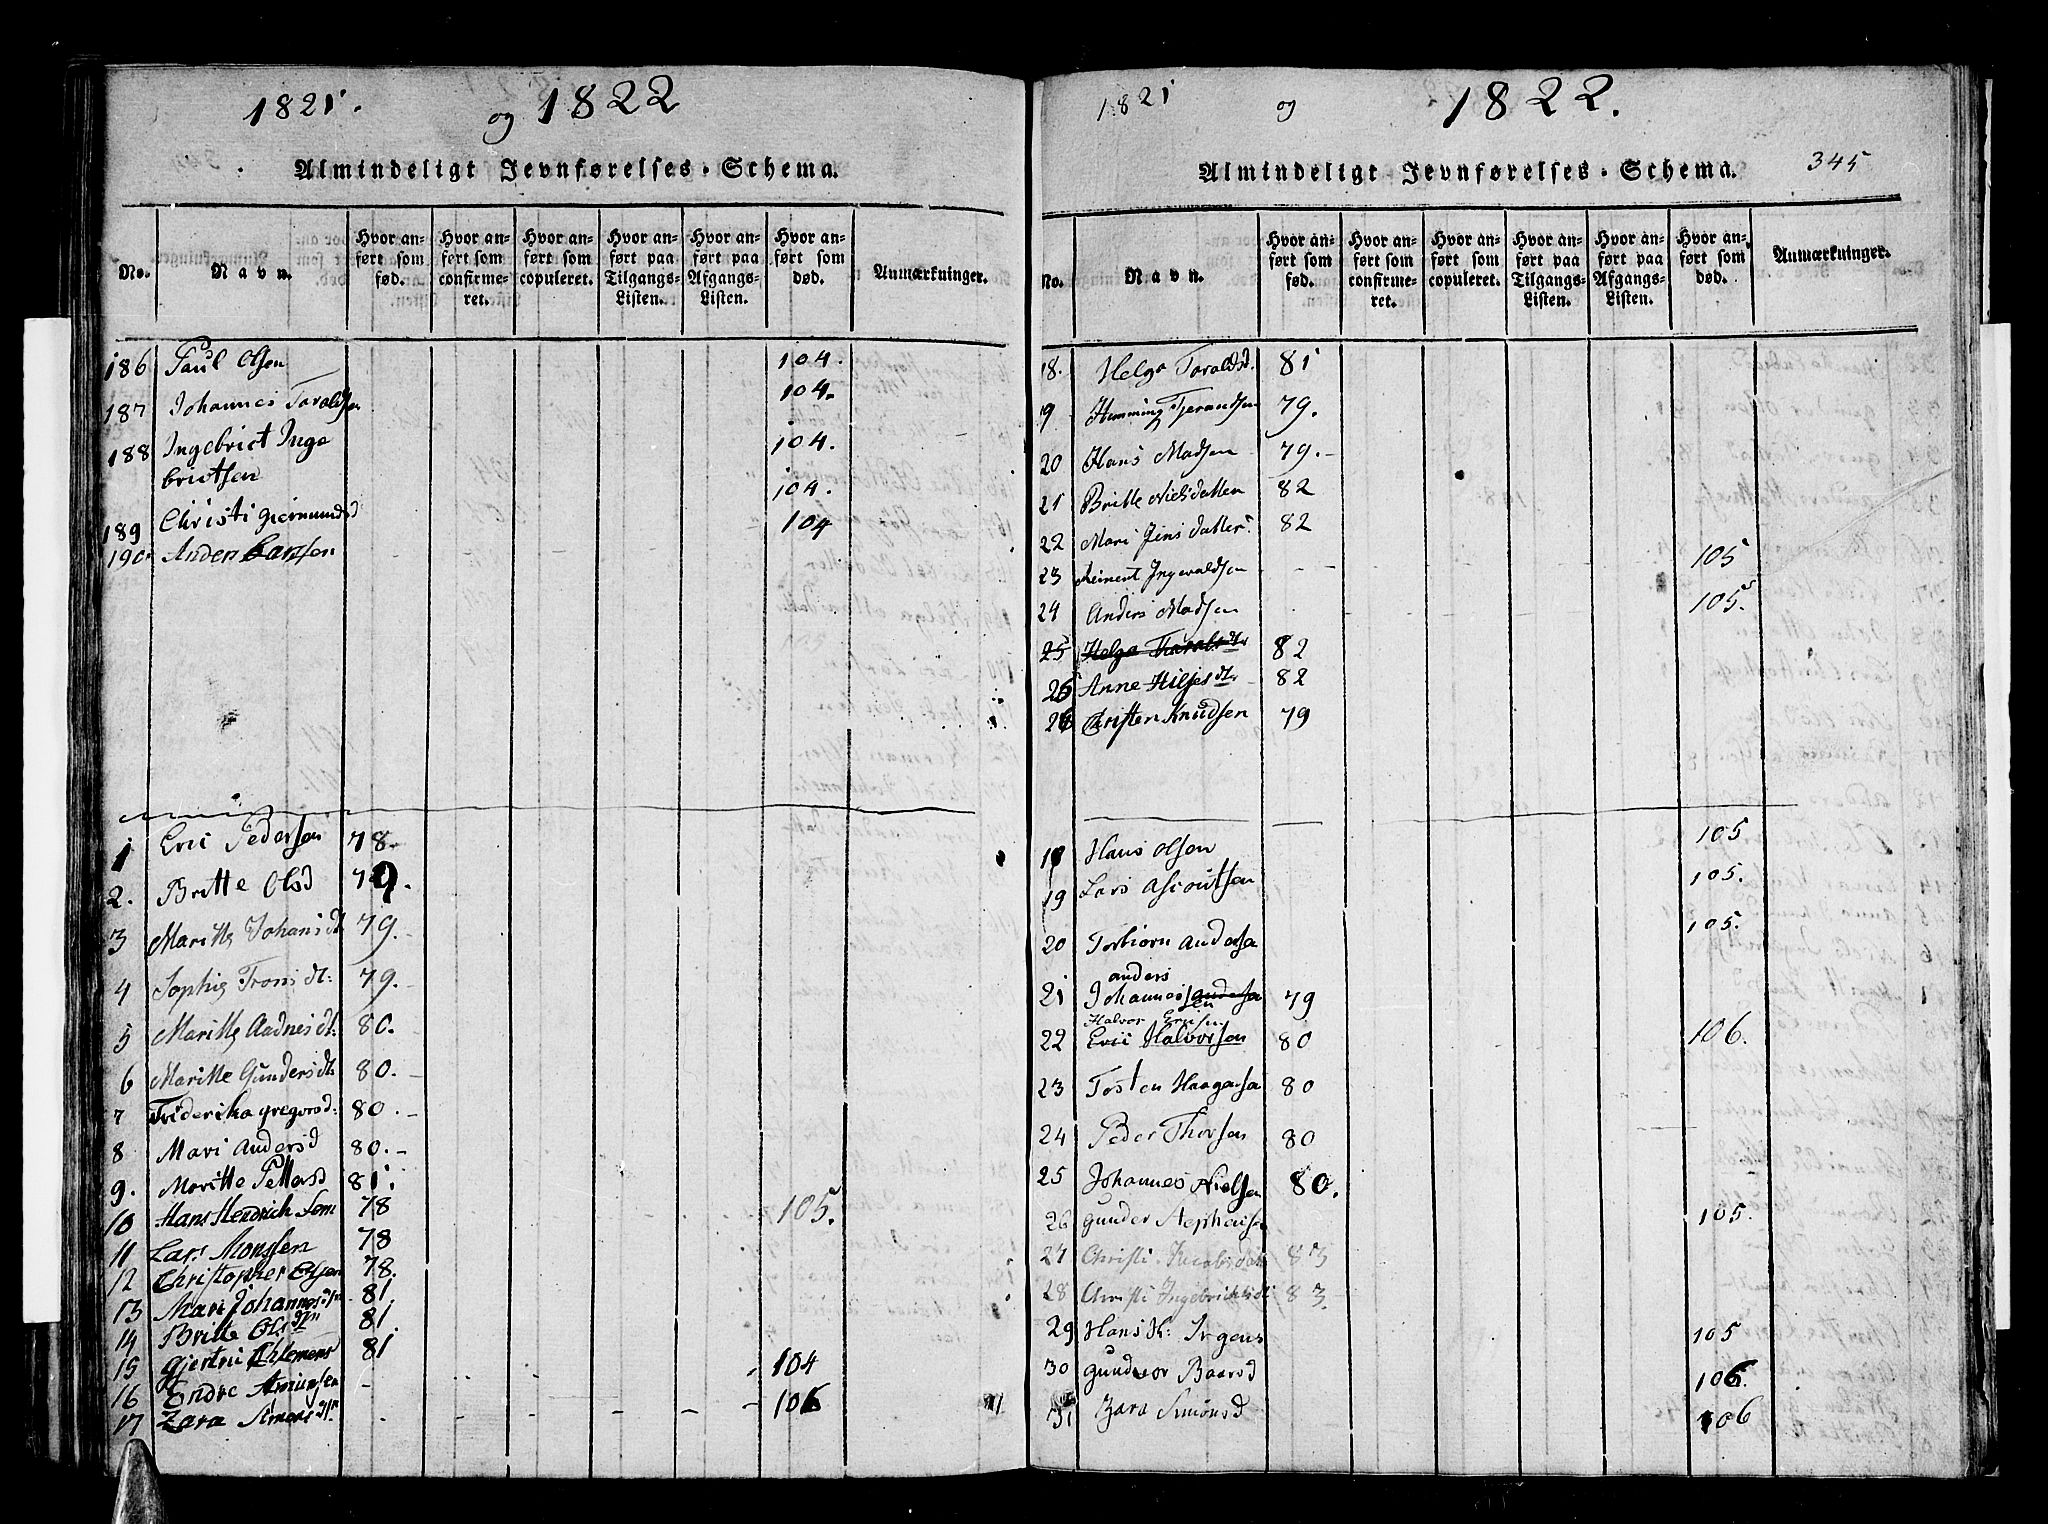 1821. og 1822
Almindeligt Jevnførelses-Schema.
No. Navn. Hvor anført som fød. Hvor anført som confirmeret. Hvor anført som copuleret. Hvor anført paa Tilgangs-Listen. Hvor anført paa Afgangs-Listen. Hvor anført som død. Anmærkninger.
186 Paul Olsen 104.
187 Johannes Taraldsen 104.
188 Ingebrict Inge
brictsen 104.
189 Christi giermundsd 104.
190 Anders Larssen 104
1 Eric Pedersen 78.
2. Britte Olsd 79.
3 Maritte Johansdt 79.
4 Sophie Trons dt: 79.
5 Maritte Aadnes dt. 80.
6 Maritte Gunders dt. 80.
7 Friderika gregorsd: 80.
8 Mari Andersd 80.
9. Maritte Pettersd 81.
10 Hans Hendrich 78 105.
11 Lars Monssen 78
12 Christopher Olsen 78.
13 Mari Johannes 81.
14 Britte Ols 81.
15 Gjertru Chlemens 81
16 Endre 104
17 Zara Simons 106
1821 og 1822.
Almindeligt Jevnførelses-Schema. 345
No. Navn. Hvor anført som fød. Hvor anført som confirmeret. Hvor anført som copuleret. Hvor anført paa Tilgangs-Listen. Hvor anført paa Afgangs-Listen. Hvor anført som død. Anmærkninger.
18. Helga Taraldsd. 81
19 Humming Tjerandsen 79.
20 Hans Madsen 79.
21 Britte Nielsdatter 82
22 Mari Jens datter 82
23 Reinert Ingevaldsen 105
24 Anders Madsen 105.
25 Helga Tharalsdtr 82
25 Anne Hiljes dtr 82
26 Christen Knudsen 79
18 Hans Olsen 105
19 Lars 105.
20 Torbiorn Andersen 105.
anders
21 Johannessen andersen 79
Halvor Ericsen
22 Eric Halvorsen 80 106.
23 Tosten Haagensen 80
24 Peder Thorsen 80
25 Johannes Nielsen 80.
26 Gunder Stephensen 105.
27 Christi Jacobsdatr 83
28 Christi Ingebrichtsdt 83.
29 Hans H: Irgens 105
30 Gundvor Baarsd 106.
31 Zara Simonsd 106